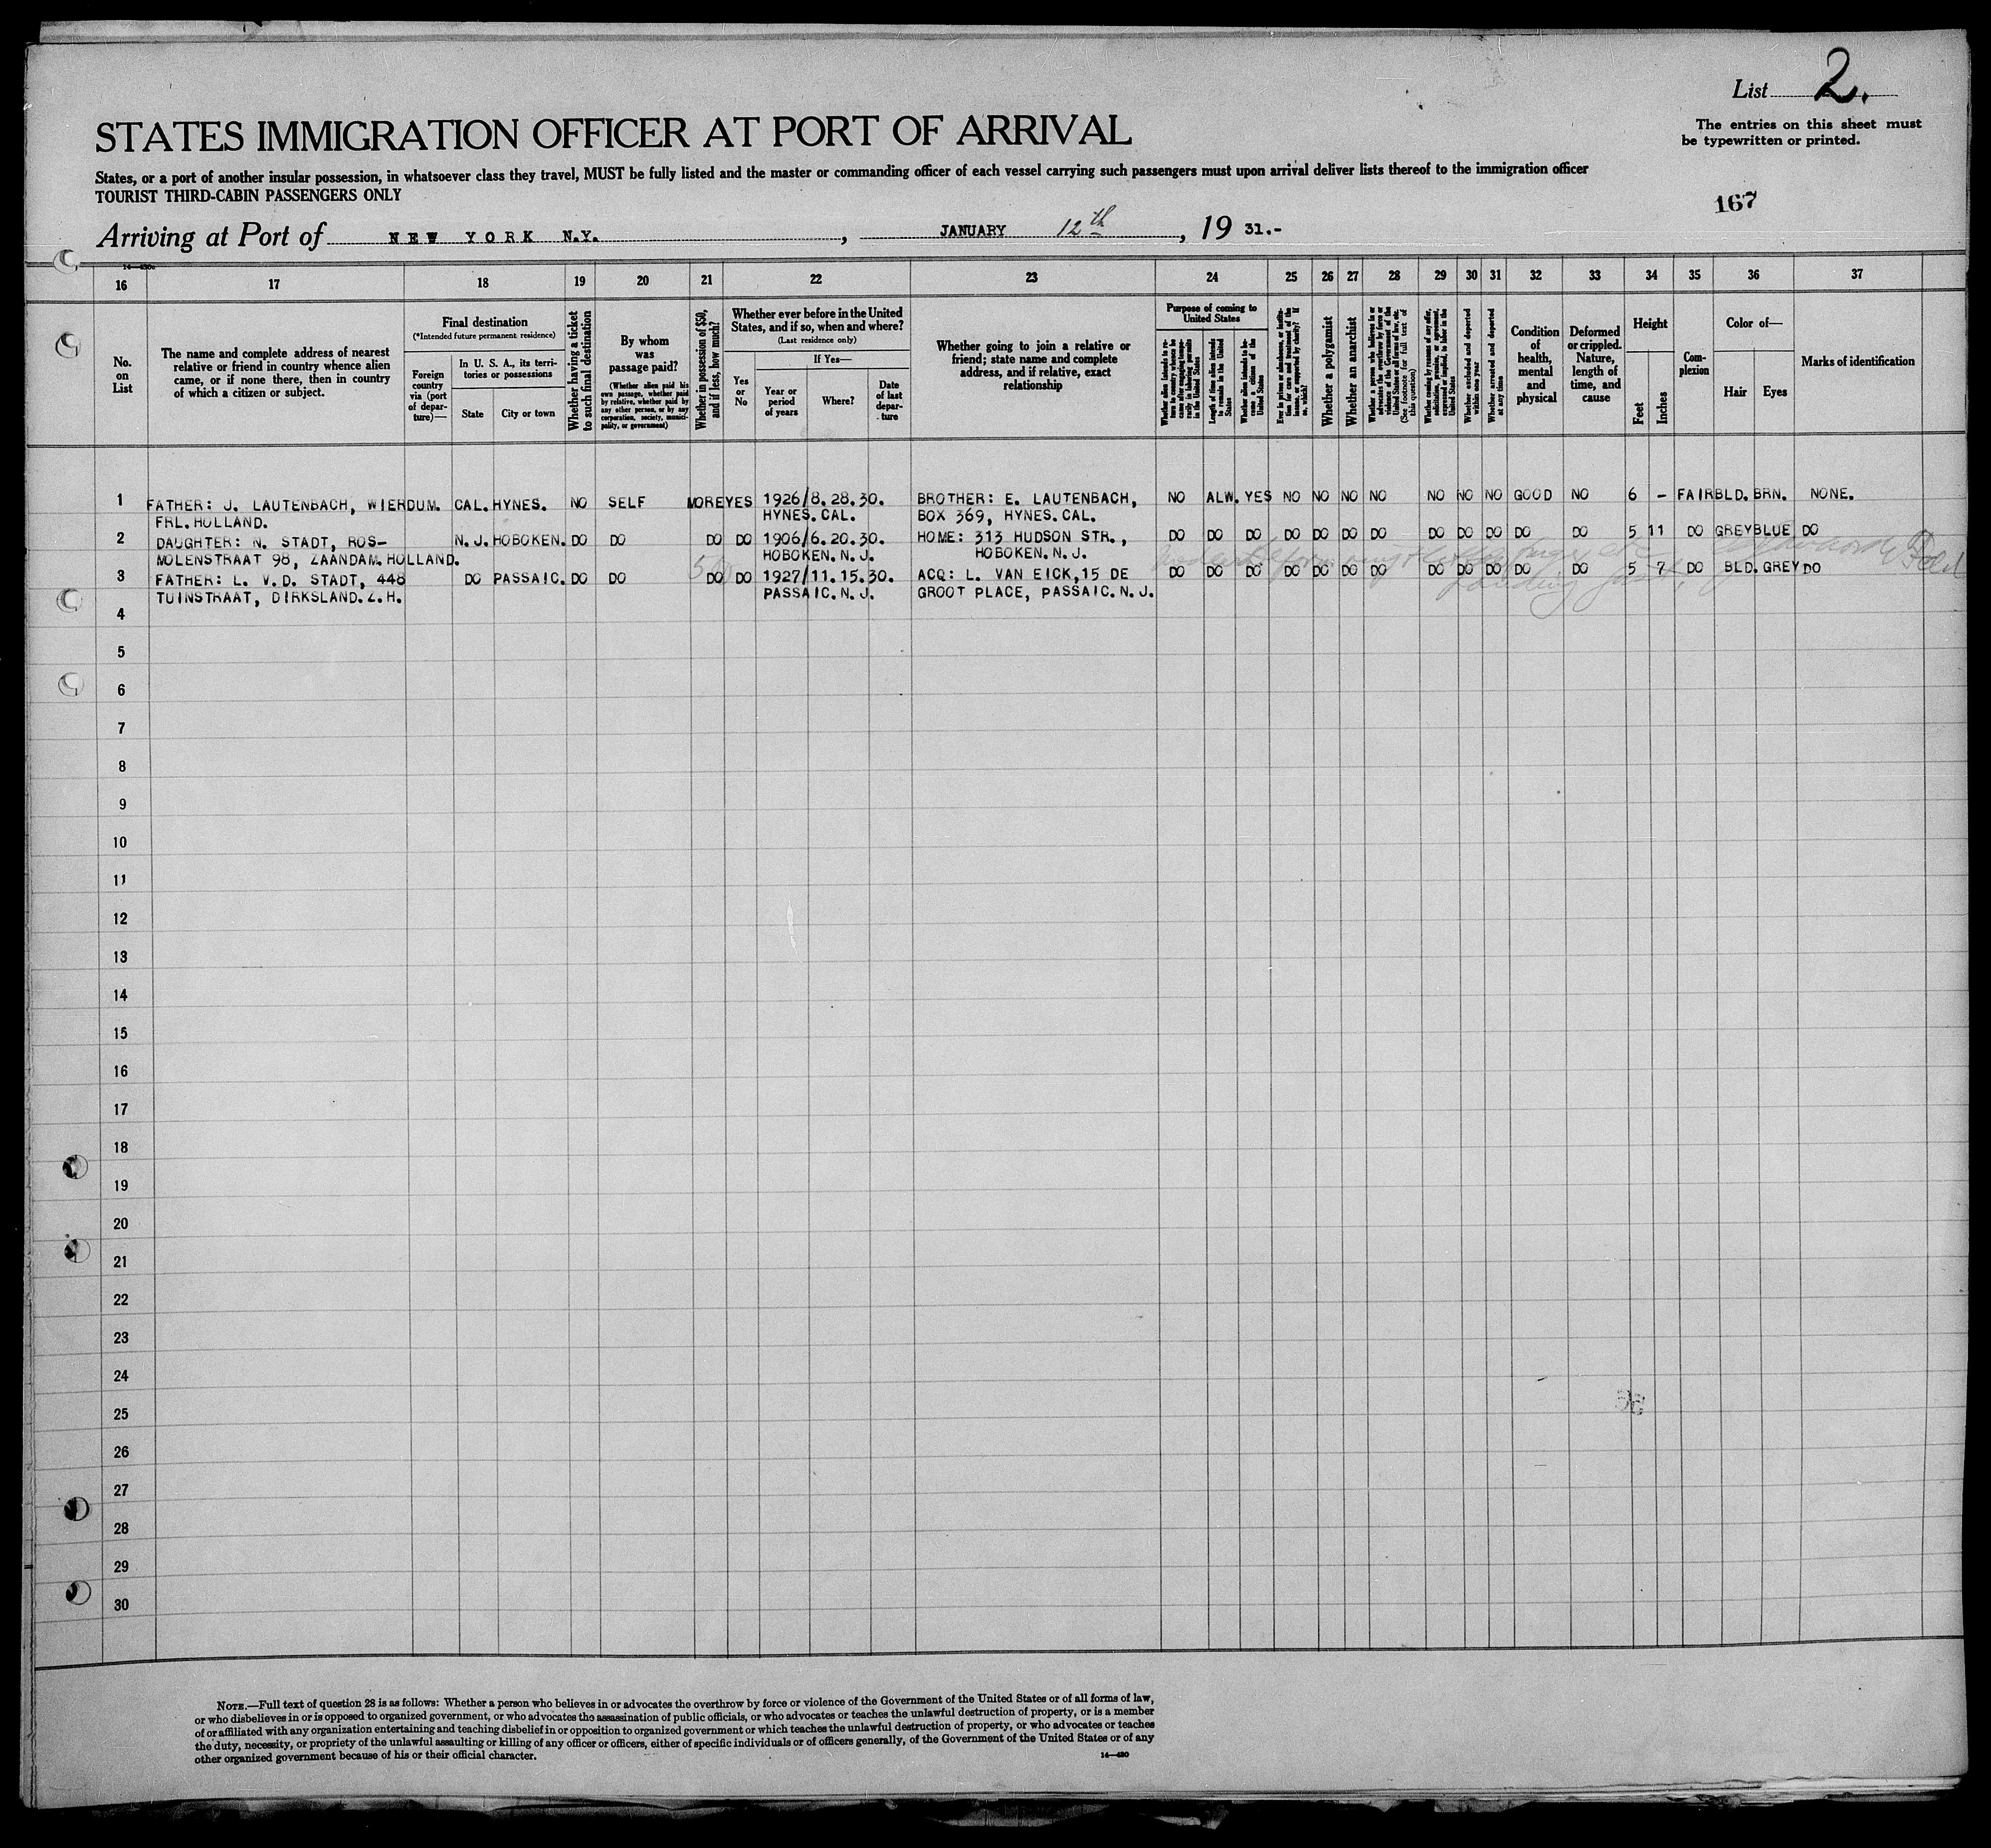 List 2.
STATES IMMIGRATION OFFICER AT PORT OF ARRIVAL
The entries on this sheet must
be typewritten or printed.
States, or a port of another insular possession, in whatsoever class they travel, MUST be fully listed and the master or commanding officer of each vessel carrying such passengers must upon arrival deliver lists thereof to the immigration officer
TOURIST THIRD-CABIN PASSENGERS ONLY
167
Arriving at Port of NEW YORK N.Y. , JANUARY 12th , 19 31.-
16 17 18 19 20 21 22 23 24 25 26 27 28 29 30 31 32 33 34 35 36 37
No.
on
List
The name and complete address of nearest
relative or friend in country whence alien
came, or if none there, then in country
of which a citizen or subject.
Final destination
(*Intended future permanent residence)
Foreign
country
via (port
of depar-
ture)—
In U. S. A., its terri-
tories or possessions
State
City or town
Whether having a ticket
to such final destination
By whom
was
passage paid?
(Whether alien paid his
own passage, whether paid
by relative, whether paid by
any other person, or by any
corporation, society, munici-
pality, or government)
Whether in possession of $50,
and if less, how much?
Whether ever before in the United
States, and if so, when and where?
(Last residence only)
Yes
or
No
If Yes—
Year or
period
of years
Where?
Date
of last
depar-
ture
Whether going to join a relative or
friend; state name and complete
address, and if relative, exact
relationship
Purpose of coming to
United States
Length of time alien intends
to remain in the United
States
Whether alien intends to be-
come a citizen of the
United States
Whether a polygamist
Whether an anarchist
(See footnote for full text of
this question)
Whether excluded and deported
within one year
Whether arrested and deported
at any time
Condition
of
health,
mental
and
physical
Deformed
or crippled.
Nature,
length of
time, and
cause
Height
Feet
Inches
Com-
plexion
Color of—
Hair
Eyes
Marks of identification
1 FATHER: J. LAUTENBACH, WIERDUM. CAL. HYNES. NO SELF MORE YES 1926/8.28.30. BROTHER: E. LAUTENBACH, NO ALW. YES NO NO NO NO NO NO NO GOOD NO 6 - FAIR BLD. BRN. NONE.
FRL. HOLLAND. HYNES. CAL. BOX 369, HYNES. CAL.
2 DAUGHTER: N. STADT, ROS- N.J. HOBOKEN. DO DO DO DO 1906/6.20.30. HOME: 313 HUDSON STR., DO DO DO DO DO DO DO DO DO DO DO DO 5 11 DO GREY BLUE DO
MOLENSTRAAT 98, ZAANDAM. HOLLAND. HOBOKEN. N.J. HOBOKEN. N.J.
3 FATHER: L. V.D. STADT, 448 DO PASSAIC. DO DO DO DO 1927/11.15.30. ACQ: L. VAN EICK, 15 DE DO DO DO DO DO DO DO DO DO DO DO DO 5 7 DO BLD. GREY DO
TUINSTRAAT, DIRKSLAND. Z.H. PASSAIC. N.J. GROOT PLACE, PASSAIC. N.J.
4
5
6
7
8
9
10
11
12
13
14
15
16
17
18
19
20
21
22
23
24
25
26
27
28
29
30
NOTE.—Full text of question 28 is as follows: Whether a person who believes in or advocates the overthrow by force or violence of the Government of the United States or of all forms of law,
or who disbelieves in or is opposed to organized government, or who advocates the assassination of public officials, or who advocates or teaches the unlawful destruction of property, or is a member
of or affiliated with any organization entertaining and teaching disbelief in or opposition to organized government or which teaches the unlawful destruction of property, or who advocates or teaches
the duty, necessity, or propriety of the unlawful assaulting or killing of any officer or officers, either of specific individuals or of officers generally, of the Government of the United States or of any
other organized government because of his or their official character.
14—430